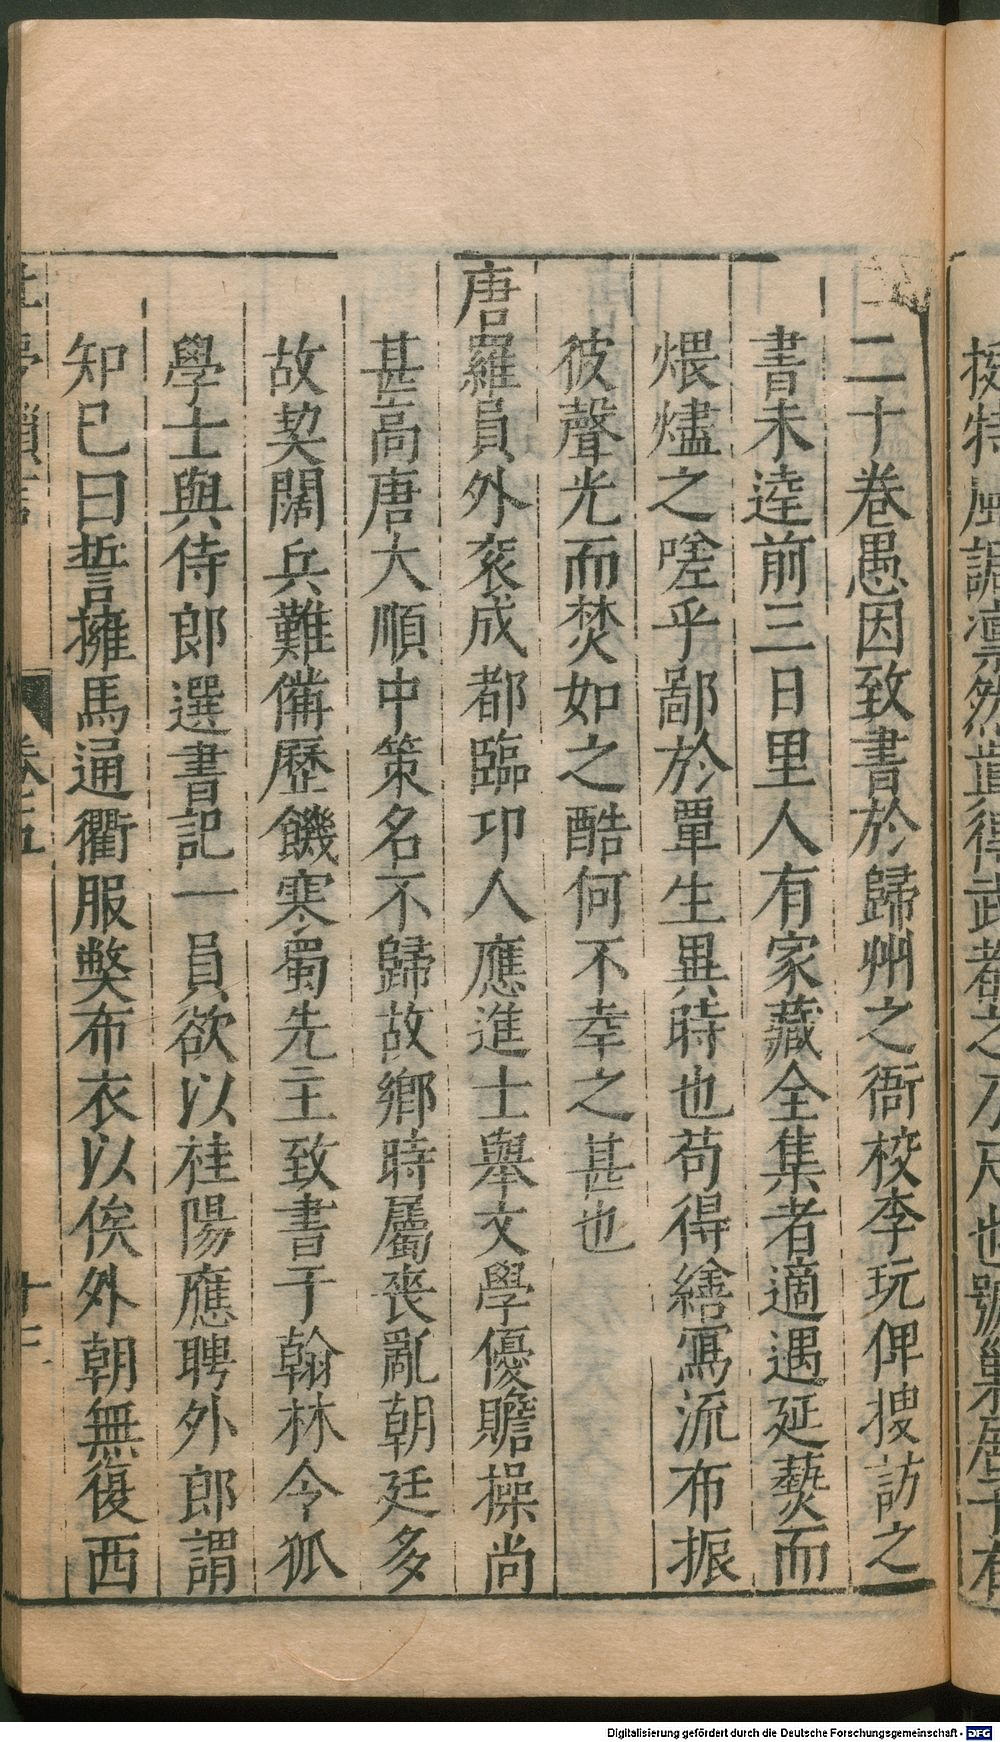 二十卷愚因致書於歸州之衙校李玩俾搜訪之
書未達前三日里人有家藏全集者適遇延爇而
煨燼之嗟乎鄙於覃生異時也苟得繕寫流布振
彼聲光而焚如之酷何不幸之甚也
唐羅員外衮成都臨卭人應進士舉文學優贍操尚
甚高唐大順中策名不歸故鄉時屬喪亂朝廷多
故契闊兵難備歷饑寒蜀先主致書于翰林令狐
學士與侍郎選書記一員欲以桂陽應聘外郎謂
知已曰誓擁馬通衢服獘布衣以俟外朝無復西
卷五
Digitalisierung gefördert durch die Deutsche Forschungsgemeinschaft - DFG